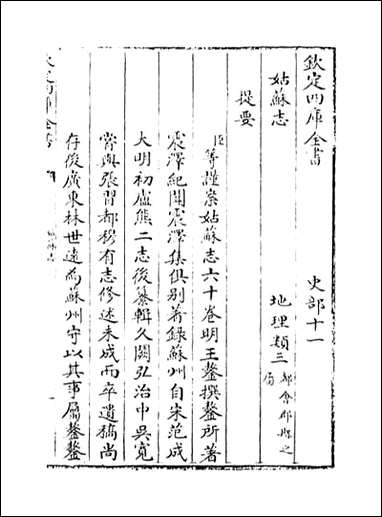 欽定四庫全書　史部十一
姑蘇志　地理類三都會郡縣之屬
提要
臣等謹案姑蘇志六十卷明王鏊撰鏊所著
震澤紀聞震澤集俱別著錄蘇州自宋范成
大明初盧熊二志後纂輯久闕弘治中吳寬
嘗與張習都穆有志修述未成而卒遺稿尚
存後廣東林世遠為蘇州守以其事屬鏊鏊